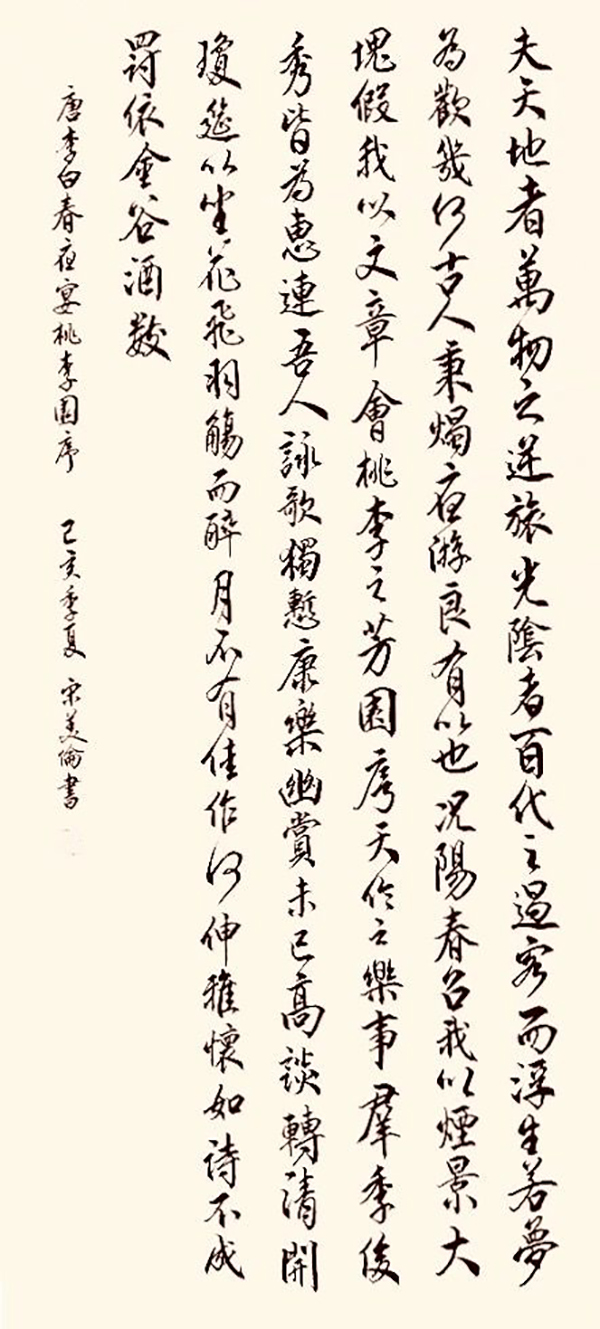 夫天地者萬物之逆旅光陰者百代之過客而浮生若夢
為歡幾何古人秉燭夜游良有以也況陽春召我以煙景大
塊假我以文章會桃李之芳園序天倫之樂事羣季俊
秀皆為惠連吾人詠歌獨慙康樂幽賞未已高談轉清開
瓊筵以坐花飛羽觴而醉月不有佳作何伸雅懷如詩不成
罰依金谷酒數
唐李白春夜宴桃李園序 己亥季夏 宋美倫書